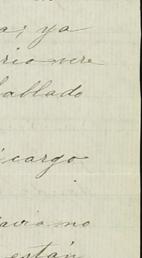 a; ya
rio vere
hablado
cargo
avia no
están